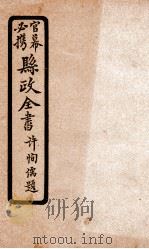 官幕
必携
縣政全書
許恂儒題